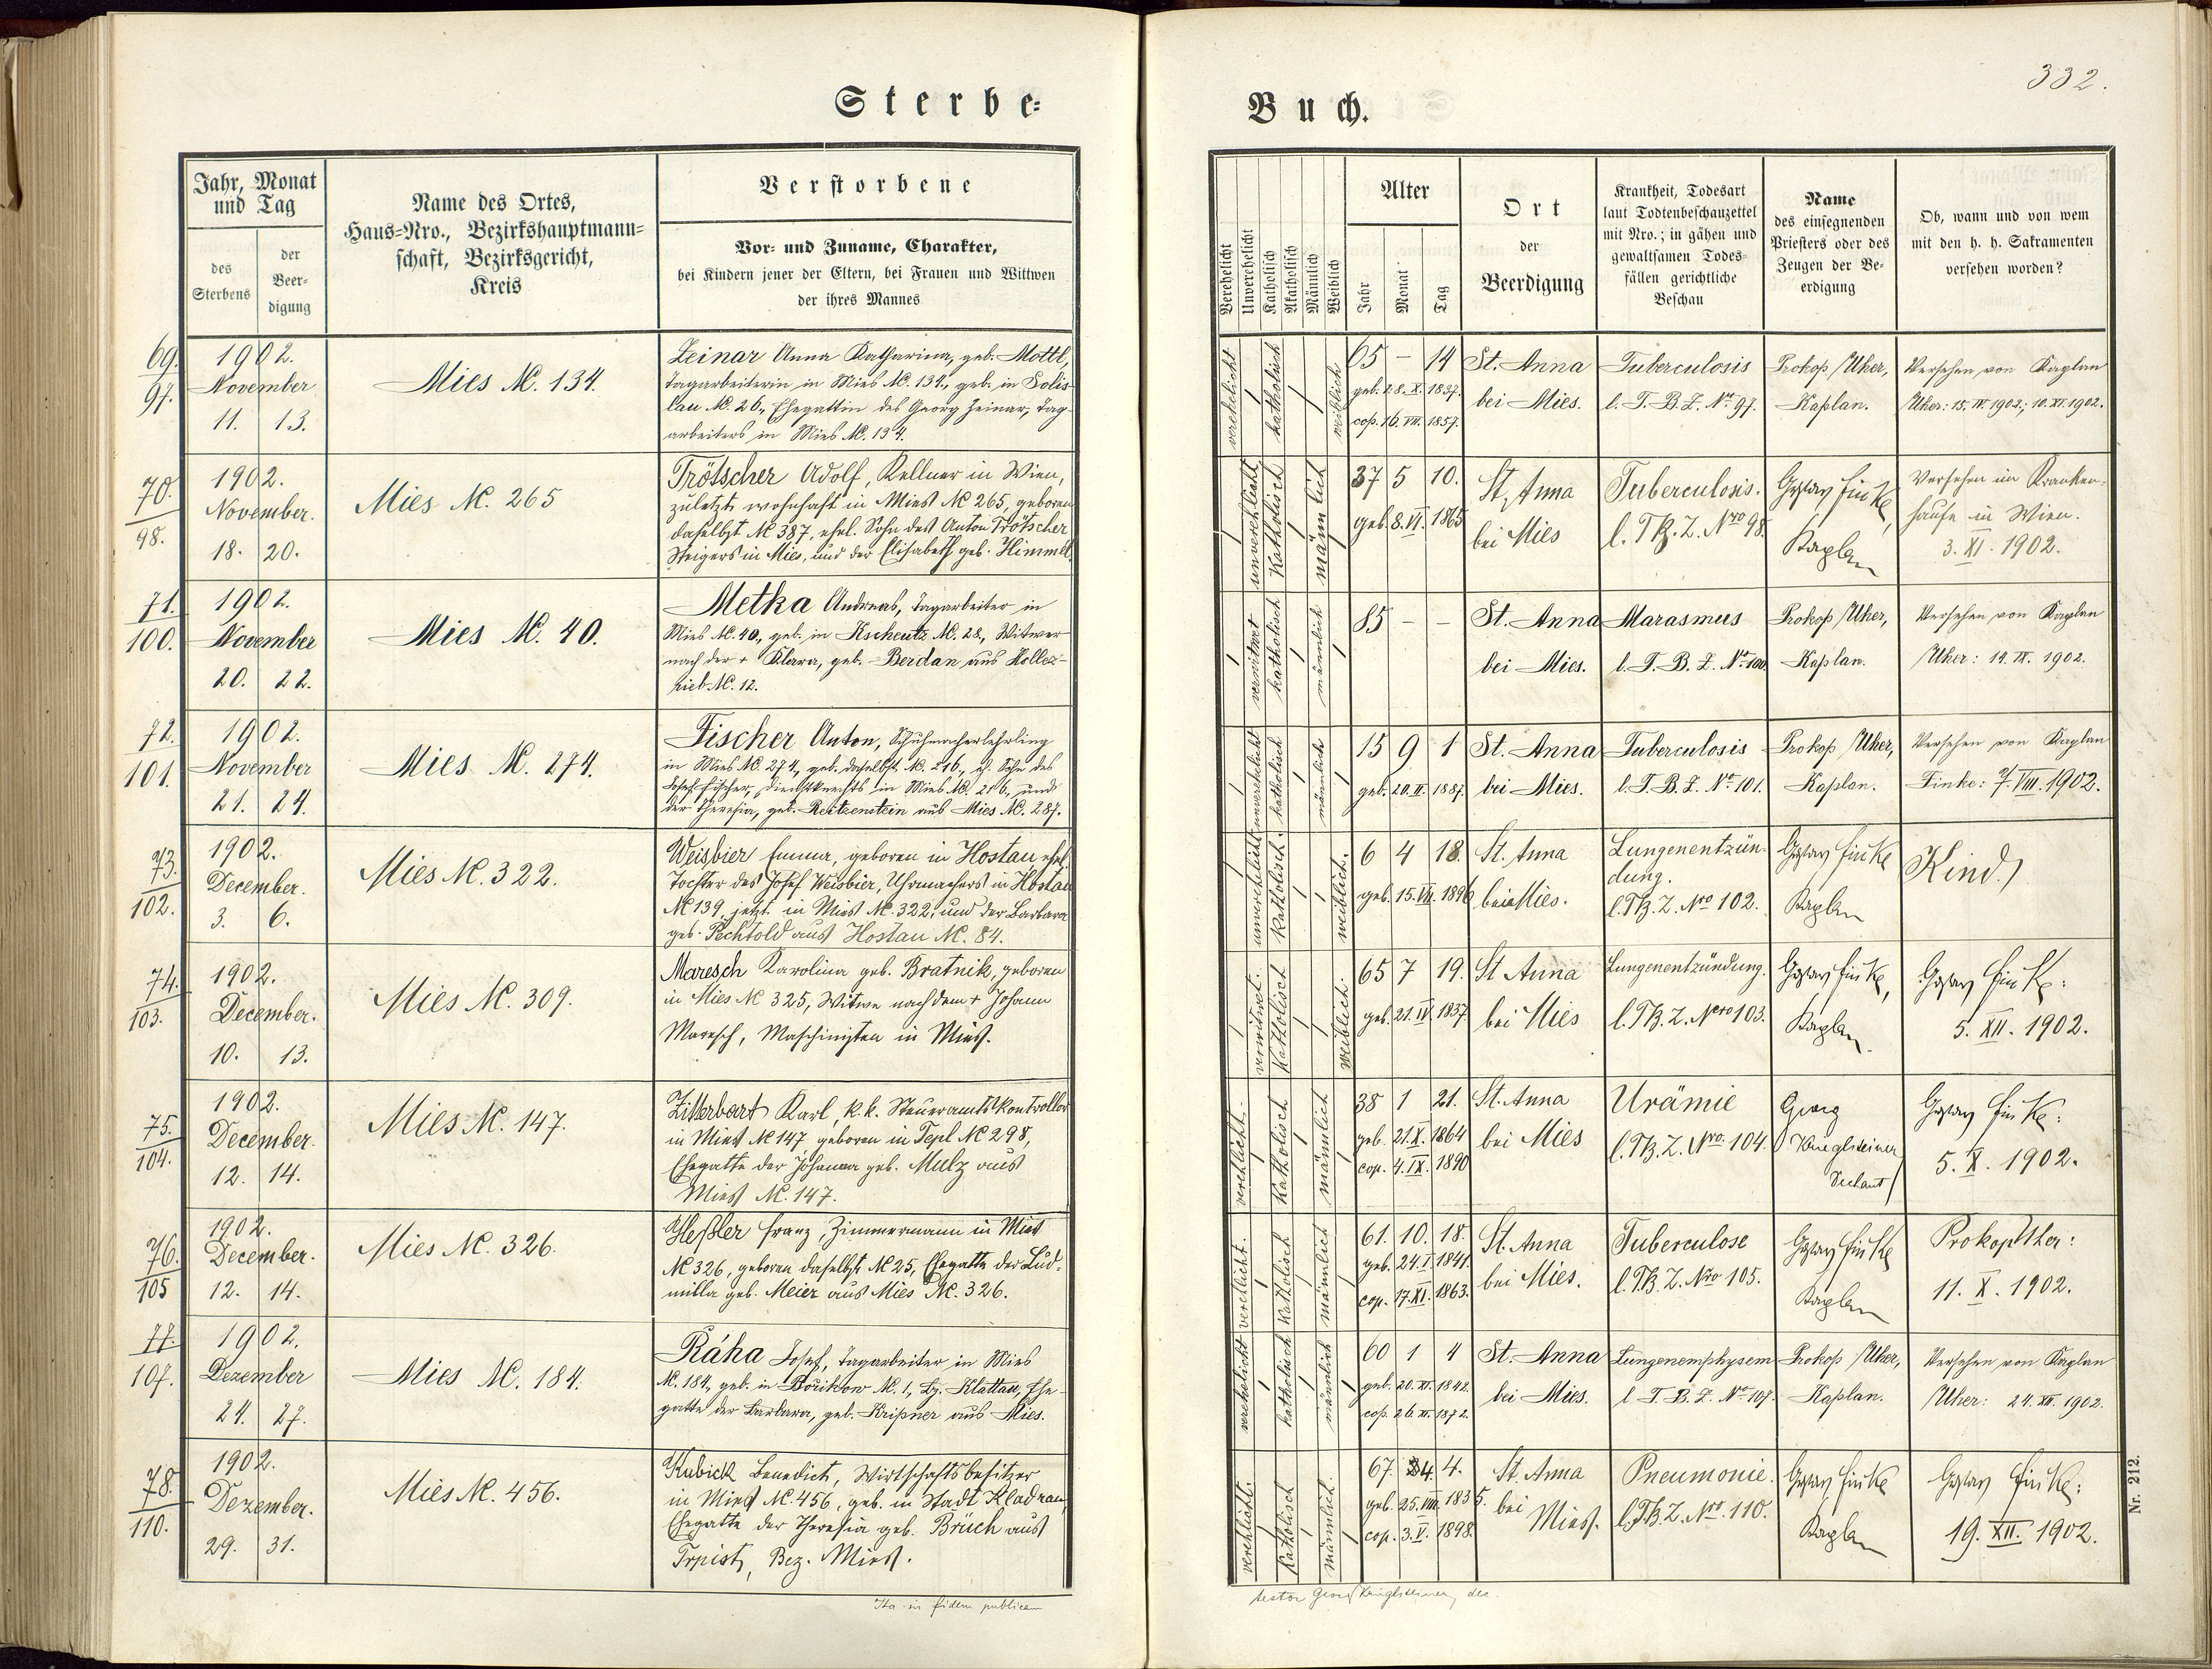 332.
Sterbe-
Buch.
Jahr, Monat
und Tag
des
Sterbens
der
Beer-
digung
Name des Ortes,
Haus-Nro., Bezirkshauptmann-
schaft, Bezirksgericht,
Kreis
Verstorbene
Vor- und Zuname, Charakter,
bei Kindern jener der Eltern, bei Frauen und Wittwen
der ihres Mannes
Verehelicht
Unverehelicht
Katholisch
Akatholisch
Männlich
Weiblich
Alter
Jahr
Monat
Tag
Ort
der
Beerdigung
Krankheit, Todesart
laut Todtenbeschauzettel
mit Nro.; in gähen und
gewaltsamen Todes-
fällen gerichtliche
Beschau
Name
des einsegnenden
Priesters oder des
Zeugen der Be-
erdigung
Ob, wann und von wem
mit den h. h. Sakramenten
versehen worden?
69.
97.
1902.
November
11. 13.
Mies N. 134.
Zeinar Anna Katharina, geb. Mottl,
Tagarbeiterin in Mies N. 134., geb. in Solis-
lau N. 26., Ehegattin des Georg Zeinar, Tag-
arbeiters in Mies N. 134.
verehelicht
katholisch
weiblich
65 – 14
geb. 28. X. 1837.
cop. 16. VII. 1857.
St. Anna
bei Mies.
Tuberculosis
l. T. B. Z. No. 97.
Prokop Uher,
Kaplan.
Versehen von Kaplan
Uher: 15. IV. 1902.; 10. XI. 1902.
70.
98.
1902.
November.
18. 20.
Mies N. 265
Trötscher Adolf, Kellner in Wien,
zuletzt wohnhaft in Mies N 265, geboren
daselbst N 387, ehel. Sohn des Anton Trötscher
Steigers in Mies, und der Elisabeth geb. Himmel
unverehelicht
Katholisch
männlich
37 5 10.
geb. 8. VI. 1865
St. Anna
bei Mies
Tuberculosis.
l. TB. Z. Nro 98.
Gustav Finke,
Kaplan
Versehen im Kranken-
hause in Wien.
3. XI. 1902.
71.
100.
1902.
November
20. 22.
Mies N. 40.
Metka Andreas, Tagarbeiter in
Mies N. 40., geb. in Kscheutz N. 28., Witwer
nach der + Klara, geb. Berdan aus Hollez-
rieb N. 12.
verwitwet
katholisch
männlich
85 – –
St. Anna
bei Mies.
Marasmus
l. T. B. Z. No. 100
Prokop Uher,
Kaplan.
Versehen von Kaplan
Uher: 14. IX. 1902.
72.
101.
1902.
November
21. 24.
Mies N. 274.
Fischer Anton, Schuhmacherlehrling
in Mies N. 274., geb. daselbst N. 216., eh. Sohn des
Josef Fischer, Dienstknechts in Mies N. 216., und
der Theresia, geb. Reitzenstein aus Mies N. 287.
unverehelicht
katholisch
männlich
15 9 1
geb. 20. II. 1887.
St. Anna
bei Mies.
Tuberculosis
l. T. B. Z. No. 101.
Prokop Uher,
Kaplan.
Versehen von Kaplan
Finke: 7. VIII. 1902.
73.
102.
1902.
December.
3. 6.
Mies N. 322.
Weisbier Emma, geboren in Hostau, ehel.
Tochter des Josef Weisbier, Uhrmachers in Hostau
N 139, jetzt in Mies N. 322, und der Barbara
geb. Pechtold aus Hostau N. 84.
unverehelicht
Katholisch.
weiblich.
6 4 18.
geb. 15. VII. 1896
St. Anna
bei Mies.
Lungenentzün-
dung.
l. TB. Z. Nro 102.
Gustav Finke
Kaplan
Kind.
74.
103.
1902.
December.
10. 13.
Mies N. 309.
Maresch Karolina geb. Bratnik, geboren
in Mies N 325, Witwe nach dem + Johann
Maresch, Maschinisten in Mies.
verwitwet.
Katholisch
weiblich.
65 7 19.
geb. 21. IV. 1837
St Anna
bei Mies
Lungenentzündung.
l. TB. Z. Nro 103.
Gustav Finke,
Kaplan.
Gustav Finke:
5. XII. 1902.
75.
104.
1902.
December.
12. 14.
Mies N. 147.
Zitterbart Karl, k. k. Steueramtskontrollor
in Mies N 147 geboren in Tepl N 298,
Ehegatte der Johanna geb. Mulz aus
Mies N. 147.
verehlicht.
Katholisch
männlich
38 1 21.
geb. 21. X. 1864
cop. 4. IX. 1890
St. Anna
bei Mies
Urämie
l. TB. Z. Nro. 104.
Georg
Krüglsteiner
Dechant
Gustav Finke:
5. X. 1902.
76.
105
1902.
December.
12. 14.
Mies N. 326.
Heßler Franz, Zimmermann in Mies
N 326, geboren daselbst N 25, Ehegatte der Lud-
milla geb. Meier aus Mies N. 326.
verehlicht.
Katholisch
männlich
61. 10. 18.
geb. 24. I. 1841.
cop. 17. XI. 1863.
St. Anna
bei Mies.
Tuberculose
l. TB. Z. Nro 105.
Gustav Finke
Kaplan
Prokop Uher:
11. X. 1902.
77.
107.
1902.
Dezember
24. 27.
Mies N. 184.
Ráha Josef, Tagarbeiter in Mies
N. 184., geb. in Bořikow N. 1, Bz. Klattau, Ehe-
gatte der Barbara, geb. Kripner aus Mies.
verehelicht
katholisch
männlich
60 1 4
geb. 20. XI. 1842.
cop. 26. XI. 1872.
St. Anna
bei Mies.
Lungenemphysem
l. T. B. Z. No. 107.
Prokop Uher,
Kaplan.
Versehen von Kaplan
Uher: 24. XII. 1902.
78.
110.
1902.
Dezember.
29. 31.
Mies N. 456.
Kubick Benedict, Wirtschaftsbesitzer
in Mies N. 456, geb. in Stadt Kladrau,
Ehegatte der Theresia geb. Brüch aus
Trpist, Bez. Mies.
verehlicht.
Katholisch
männlich.
67. 4. 4.
geb. 25. VIII. 1835.
cop. 3. V. 1898.
St. Anna
bei Mies.
Pneumonie.
l. TB. Z. Nro. 110.
Gustav Finke
Kaplan
Gustav Finke:
19. XII. 1902.
Ita in fidem publicam
testor Georg Krüglsteiner, dec.
Nr. 212.